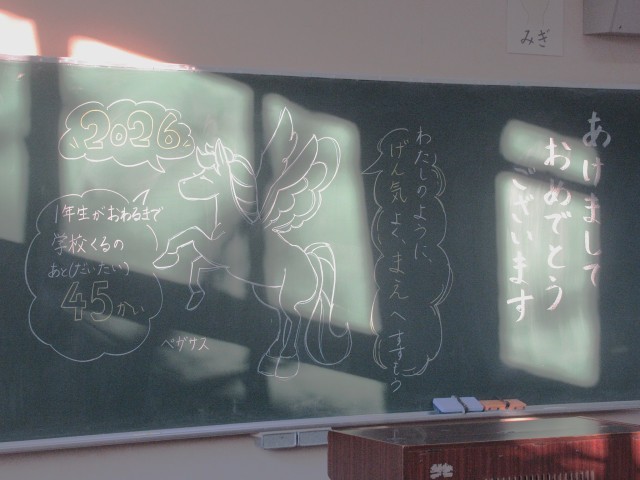 みぎ
あけまして
おめでとう
ございます
わたしのように、
げん気よく、まえへすすもう
2026
1年生がおわるまで
学校くるの
あと(だいたい)
45かい
ペガサス